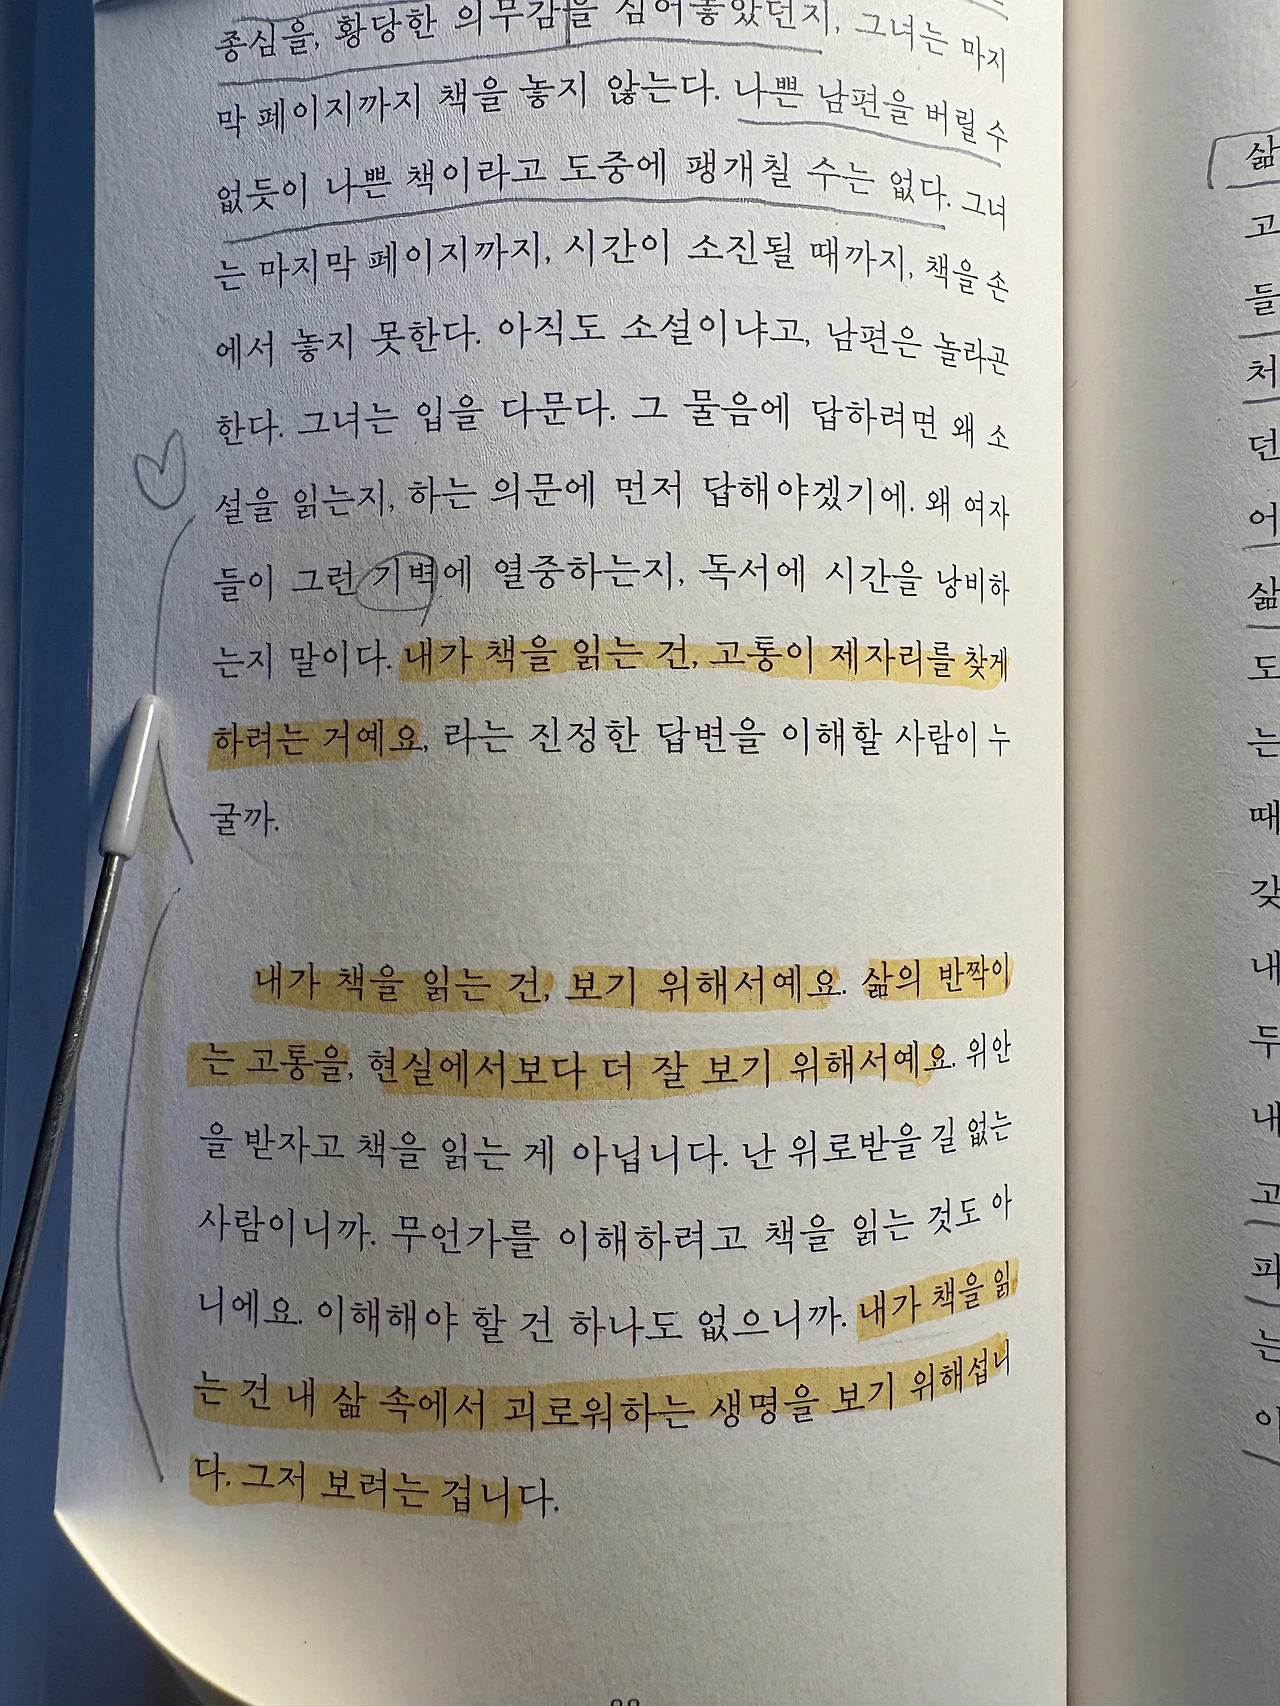 종심을, 황당한 의무감을 심어놓았던지, 그녀는 마지
막 페이지까지 책을 놓지 않는다. 나쁜 남편을 버릴 수
없듯이 나쁜 책이라고 도중에 팽개칠 수는 없다. 그녀
는 마지막 페이지까지, 시간이 소진될 때까지, 책을 손
에서 놓지 못한다. 아직도 소설이냐고, 남편은 놀라곤
한다. 그녀는 입을 다문다. 그 물음에 답하려면 왜 소
설을 읽는지, 하는 의문에 먼저 답해야겠기에. 왜 여자
들이 그런 기벽에 열중하는지, 독서에 시간을 낭비하
는지 말이다. 내가 책을 읽는 건, 고통이 제자리를 찾게
하려는 거예요, 라는 진정한 답변을 이해할 사람이 누
굴까.
내가 책을 읽는 건, 보기 위해서예요. 삶의 반짝이
는 고통을, 현실에서보다 더 잘 보기 위해서예요. 위안
을 받자고 책을 읽는 게 아닙니다. 난 위로받을 길 없는
사람이니까. 무언가를 이해하려고 책을 읽는 것도 아
니에요. 이해해야 할 건 하나도 없으니까. 내가 책을 읽
는 건 내 삶 속에서 괴로워하는 생명을 보기 위해섭니
다. 그저 보려는 겁니다.
삶
고
들
처
던
어
삶
도
는
때
갖
내
두
내
고
파
는